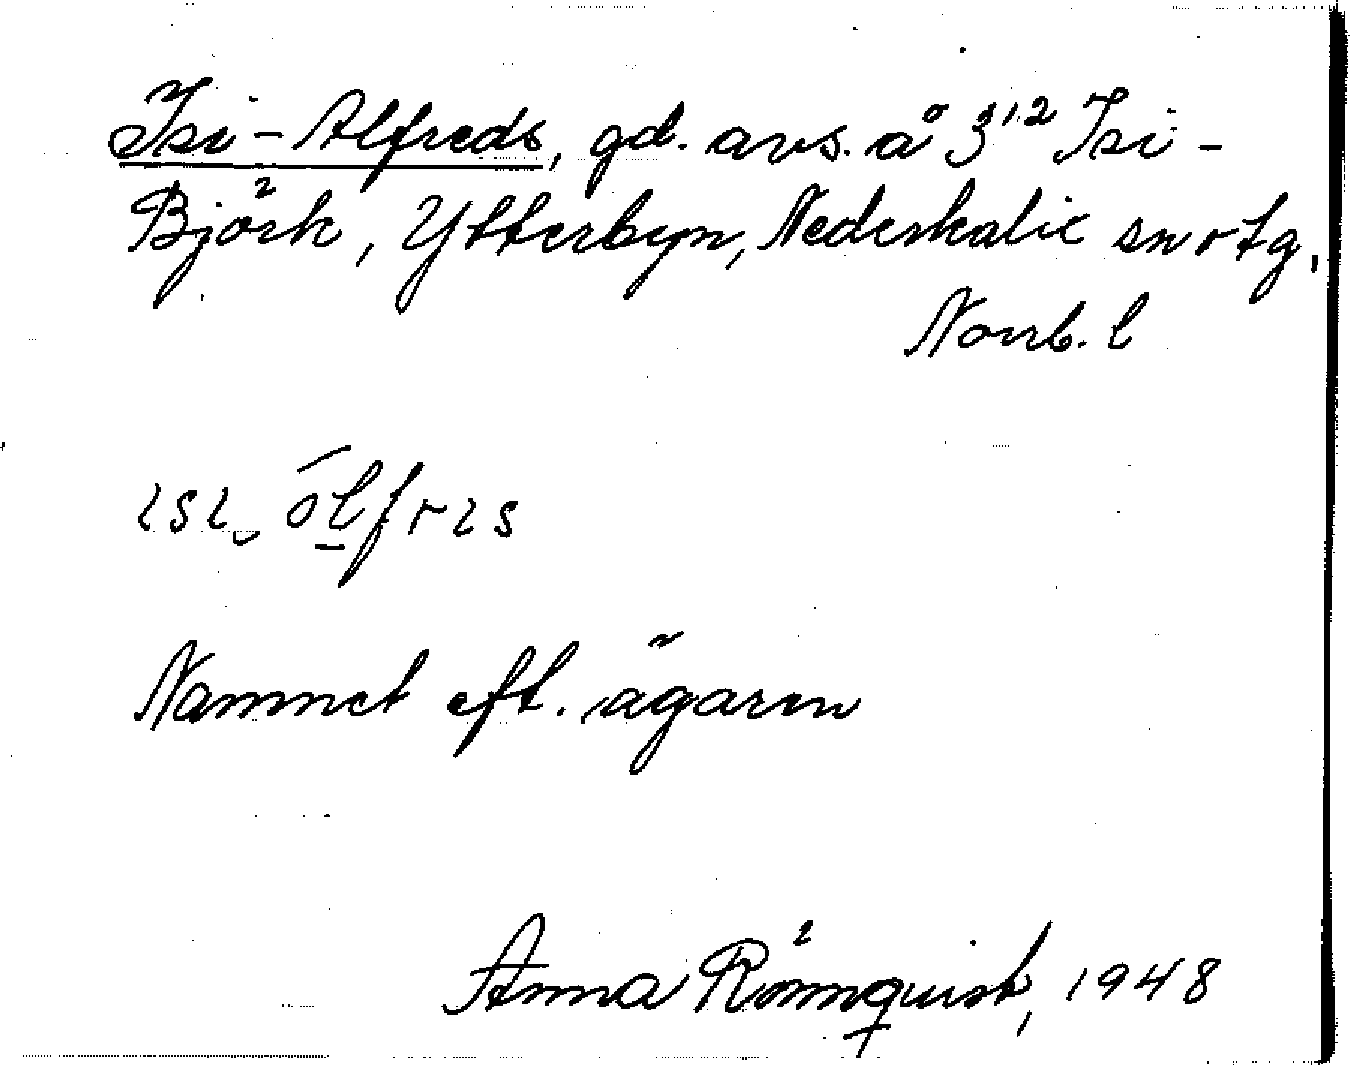 Isi-Alfreds, gd. avs. å 3¹² Isi-
Björk, Ytterbyn, Nederkalix sn o tg,
Norrb. l
ɩsɩ‿ólfrɩs
Namnet eft. ägaren
Anna Rönnquist, 1948